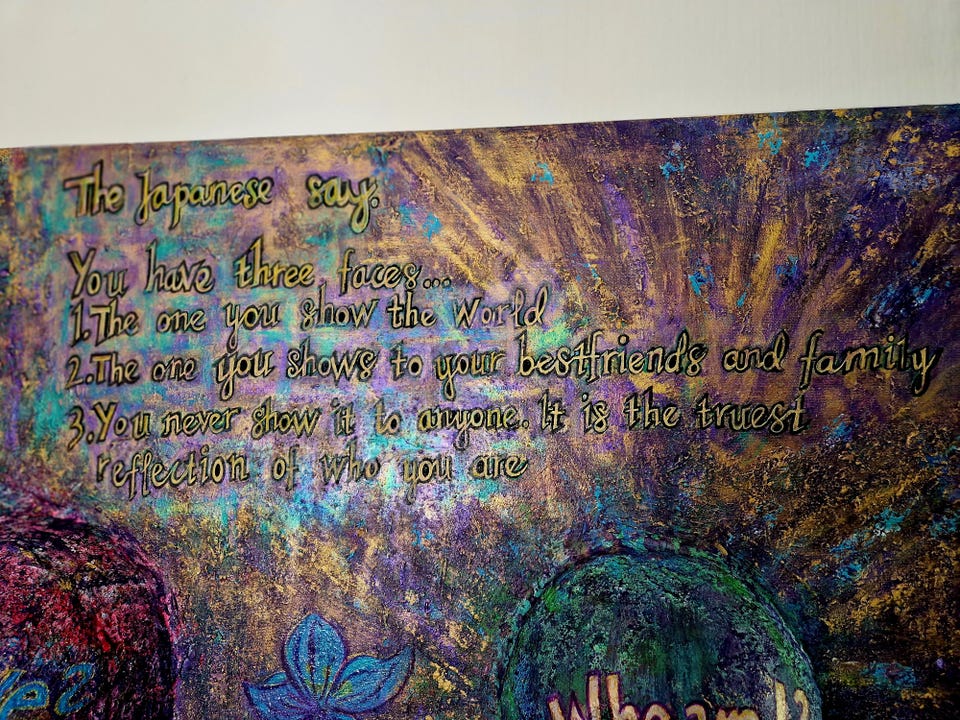 The Japanese say:
You have three faces...
1.The one you show the world
2.The one you shows to your bestfriends and family
3.You never show it to anyone. It is the truest
reflection of who you are
Who am I